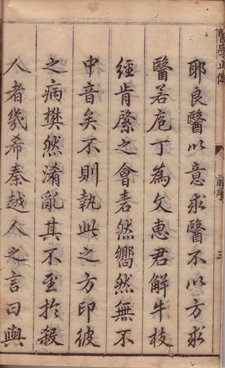 耶良醫以意求醫不以方求
醫若庖丁為文惠君解牛枝
經肯綮之會砉然嚮然無不
中音矣不則執此之方印彼
之病樊然淆亂其不至於殺
人者幾希秦越人之言曰與
醫學正傳